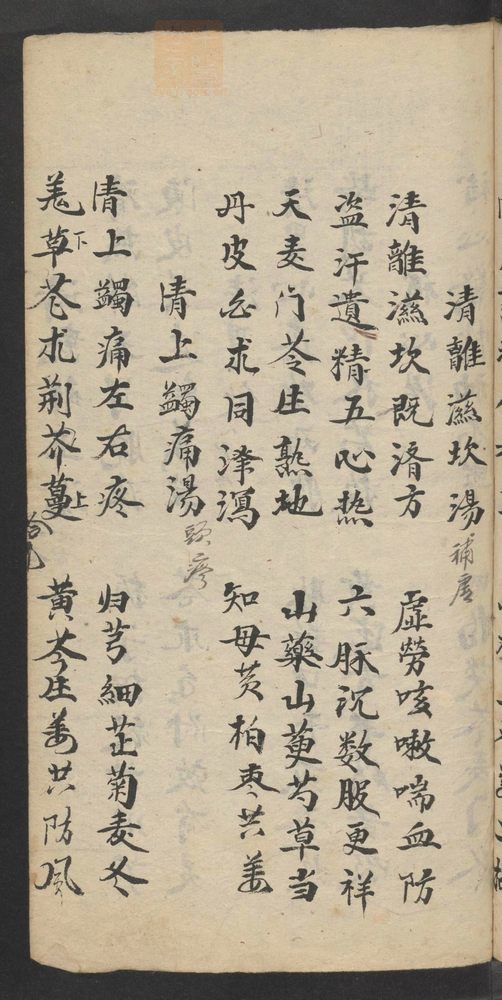 清離濕坎湯 補虛
清離濕坎既濟方 虛勞咳嗽喘血防
盗汗遺精五心热 六脉沉数服更祥
天麦门苓生熟地 山藥山萸芍草当
丹皮白术同泽瀉 知母黄柏枣共姜
清上蠲痛湯 頭疼
清上蠲痛左右疼 归芎細芷菊麦冬
羌草苍术荆芥蔓 黄芩生姜共防風
下
上